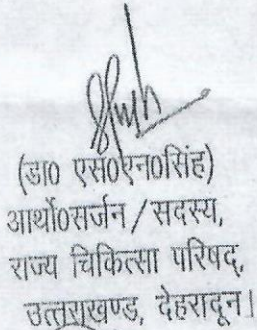 (डा0 एस0एन0सिंह)
आर्थो0सर्जन/सदस्य,
राज्य चिकित्सा परिषद्,
उत्तराखण्ड, देहरादून।